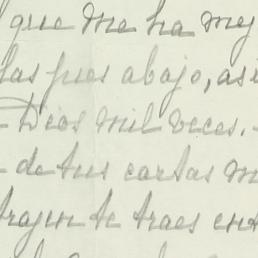 que me ha mej
las pues abajo, así
Dios mil veces.-
- de tus cartas m
trajen te traes ent